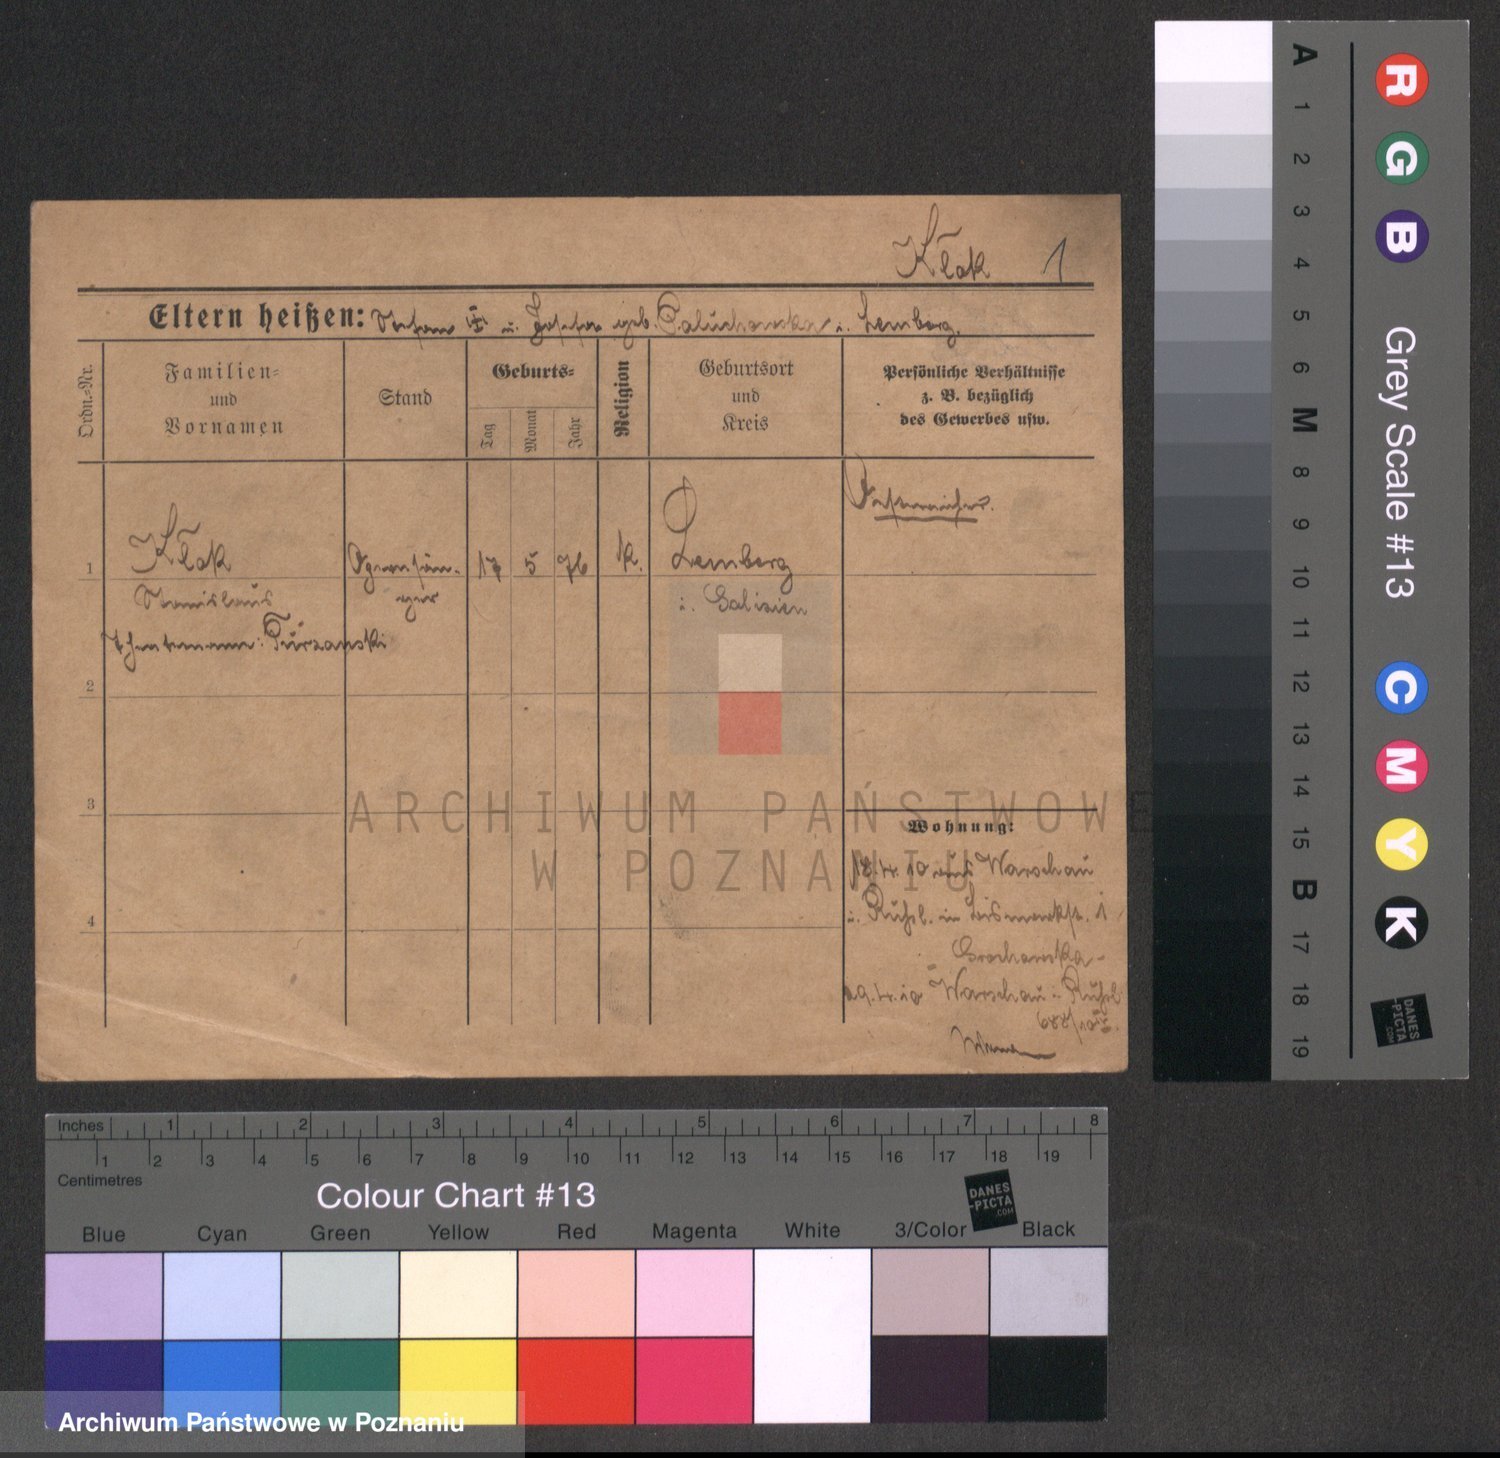 Kłak 1
Eltern heißen: Stefan † u. Josefa geb. Caluchowska i. Lemberg.
Ordn.=Nr.
Familien=
und
Vornamen
Stand
Geburts=
Tag
Monat
Jahr
Religion
Geburtsort
und
Kreis
Persönliche Verhältnisse
z. B. bezüglich
des Gewerbes usw.
Oesterreicher.
1 Kłak Opernsän- 17 5 76 k. Lemberg
Stanislaus ger i. Galizien
Theatername: Turzanski
2
3
4
Wohnung:
18.4.10 aus Warschau
i. Rußl. in Bismarckstr. 1
Grochowska
29.4.10 Warschau i. Rußl.
ARCHIWUM PAŃSTWOWE
W POZNANIU
A
1
2
3
4
5
6
M
8
9
10
11
12
13
14
15
B
17
18
19
Grey Scale #13
R
G
B
C
M
Y
K
DANES
-PICTA
.COM
Inches 1 2 3 4 5 6 7 8
1 2 3 4 5 6 7 8 9 10 11 12 13 14 15 16 17 18 19
Centimetres
Colour Chart #13
DANES
-PICTA
.COM
Blue Cyan Green Yellow Red Magenta White 3/Color Black
Archiwum Państwowe w Poznaniu